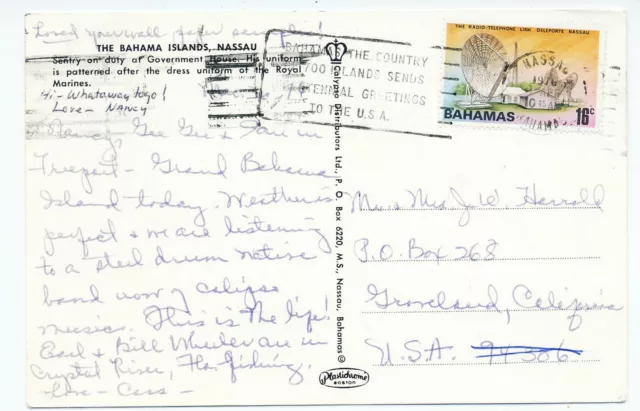 Loved your wall paper samples!
THE BAHAMA ISLANDS, NASSAU
Sentry on duty at Government House. His uniform
is patterned after the dress uniform of the Royal
Marines.
Hi - Whataway togo!
Love - Nancy
Nancy, Gee Gee & I are in
Freeport - Grand Bahama
Island today. Weather is
perfect & we are listening
to a steel drum native
band now of calipso
music. This is the life!
Earl & Bill Wheeler are in
Crystal River, Fla. fishing.
- Love - Cass -
Distributors Ltd., P. O. Box 6220, M.S., Nassau, Bahamas ©
Plastichrome
BOSTON
BAHAMAS THE COUNTRY
700 ISLANDS SENDS
GREETINGS
TO THE U.S.A.
THE RADIO-TELEPHONE LINK DELEPORTE NASSAU
NASSAU
1976
BAHAMA
BAHAMAS 16c
Mr. & Mrs. J. W. Harrold
P.O. Box 268
Groveland, California
U.S.A.